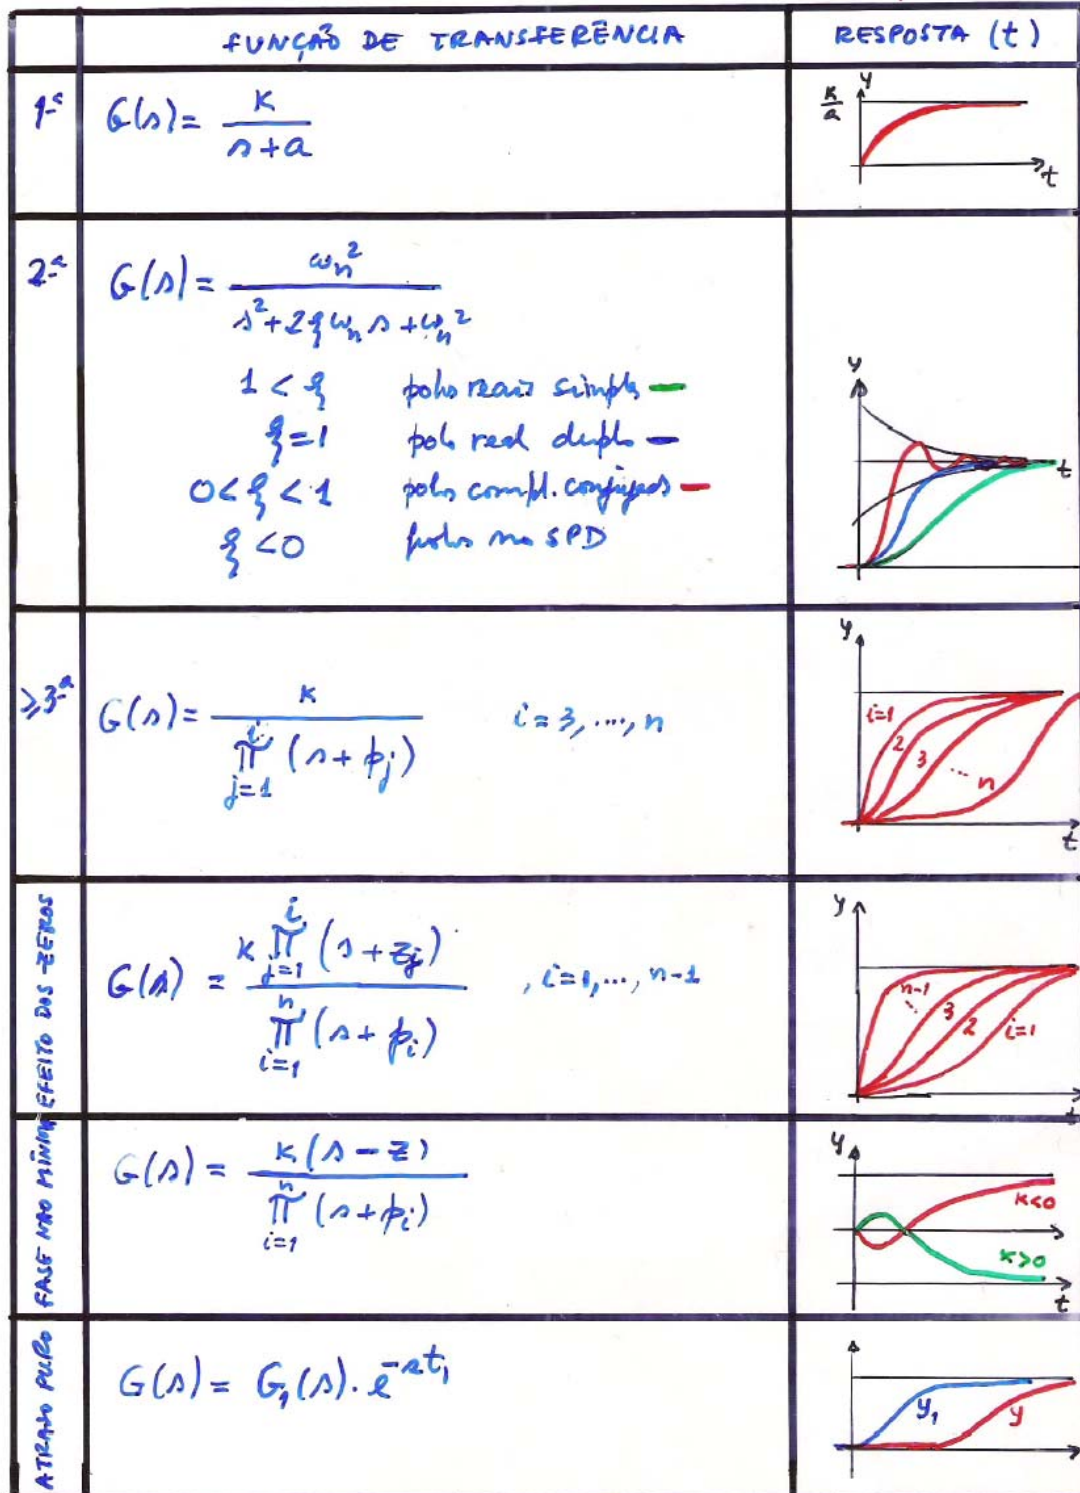 FUNÇÃO DE TRANSFERÊNCIA
RESPOSTA (t)
1ª
G(s) = K / (s+a)
K/a
y
t
2ª
G(s) = ωn² / (s²+2ξωn s+ωn²)
1 < ξ polos reais simples
ξ=1 polo real duplo
0<ξ<1 polos compl. conjugados
ξ<0 polos no SPD
y
t
≥3ª
G(s) = K / ∏_{j=1}^{i} (s+pj) i=3,...,n
y
i=1
2
3
... n
t
EFEITO DOS ZEROS
G(s) = K ∏_{j=1}^{i} (s+zj) / ∏_{i=1}^{n} (s+pi) , i=1,...,n-1
y
n-1
...
3
2
i=1
t
FASE NÃO MÍNIMA
G(s) = K(s-z) / ∏_{i=1}^{n} (s+pi)
y
K<0
K>0
t
ATRASO PURO
G(s) = G₁(s).e^{-st₁}
y₁
y